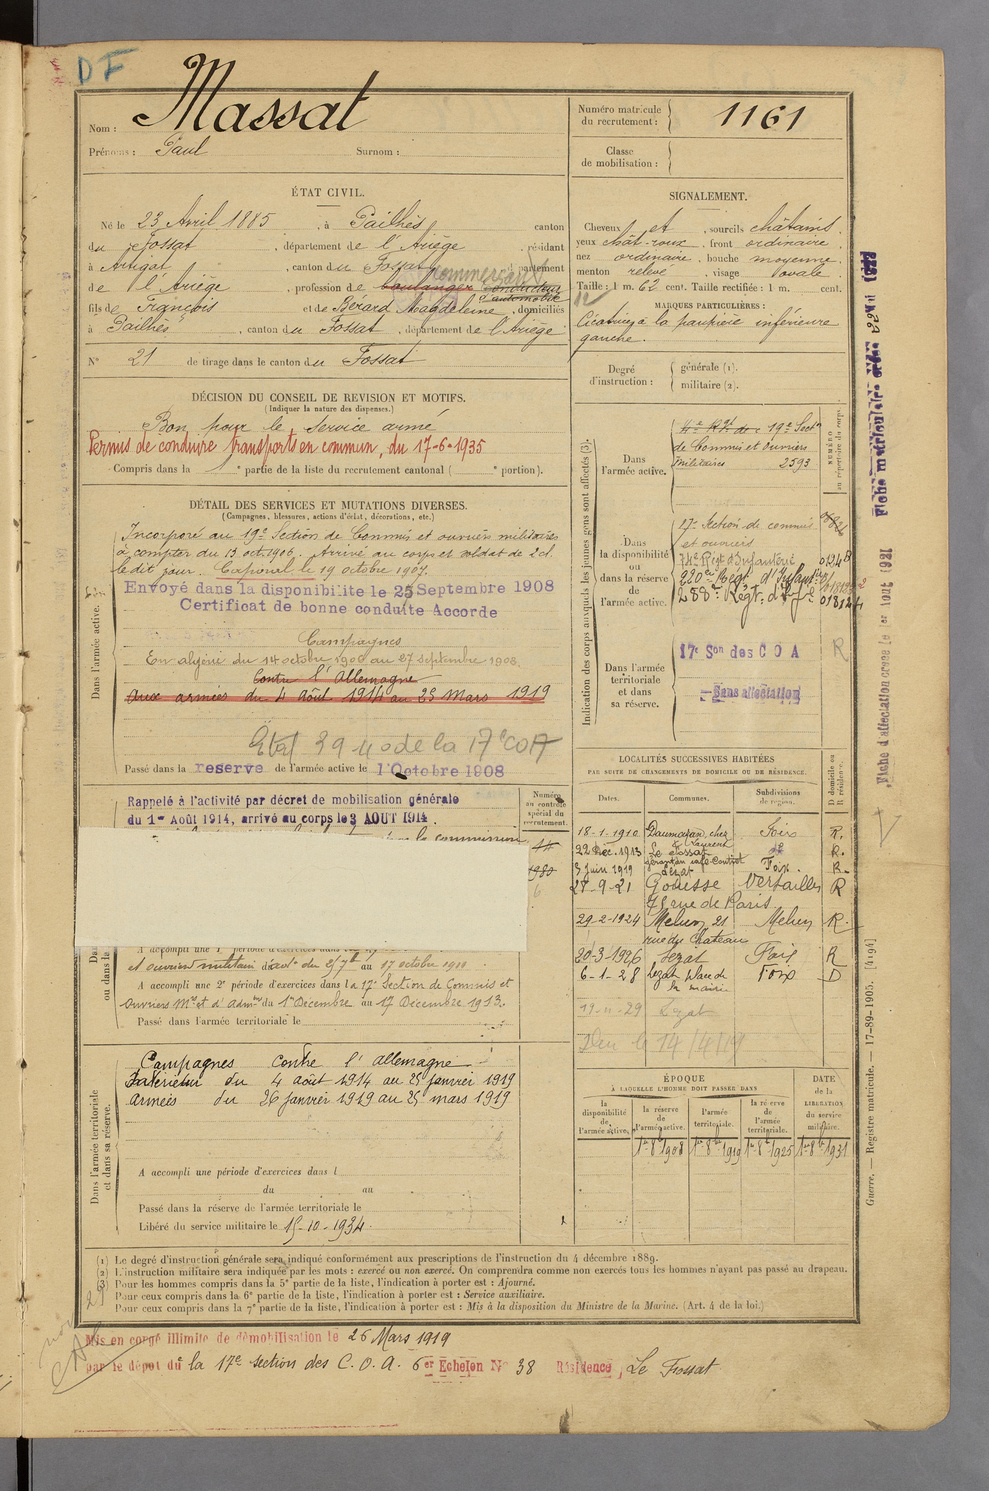 DF
Nom : Massat
Prénoms : Paul Surnom :
Numéro matricule du recrutement : 1161
Classe de mobilisation :
ÉTAT CIVIL.
Né le 23 Avril 1885, à Pailhès canton
du Fossat, département de l'Ariège, résidant
à Artigat, canton du Fossat, département
commerçant
de l'Ariège, profession de boulanger conducteur
d'automobile
fils de François et de Bérard Magdeleine, domiciliés
à Pailhès, canton du Fossat, département de l'Ariège
N° 21 de tirage dans le canton du Fossat
SIGNALEMENT.
Cheveux et, sourcils châtains,
yeux chât-roux, front ordinaire,
nez ordinaire, bouche moyenne
menton relevé, visage ovale
Taille : 1 m. 62 cent. Taille rectifiée : 1 m. cent.
MARQUES PARTICULIÈRES :
Cicatrice à la paupière inférieure
gauche.
Degré d'instruction : générale (1).
militaire (2).
DÉCISION DU CONSEIL DE REVISION ET MOTIFS.
(Indiquer la nature des dispenses.)
Bon pour le service armé
Permis de conduire transports en commun, du 17-6-1935
Compris dans la 1e partie de la liste du recrutement cantonal ( e portion).
DÉTAIL DES SERVICES ET MUTATIONS DIVERSES.
(Campagnes, blessures, actions d'éclat, décorations, etc.)
Dans l'armée active.
Incorporé au 19e Section de Commis et ouvriers militaires
à compter du 13 oct. 1906. Arrivé au corps et soldat de 2e cl.
le dit jour. Caporal le 19 octobre 1907.
Envoyé dans la disponibilité le 25 Septembre 1908
Certificat de bonne conduite Accordé
Campagnes
En algérie du 14 octobre 1906 au 27 septembre 1908
Contre l'Allemagne
Aux armées du 4 Août 1914 au 25 Mars 1919
de la 17e COA
Passé dans la reserve de l'armée active le 1 Octobre 1908
Indication des corps auxquels les jeunes gens sont affectés (3).
NUMÉRO au répertoire du corps.
Dans l'armée active.
19e Secton
de Commis et ouvriers
militaires 2593
Dans la disponibilité ou dans la réserve de l'armée active.
17e Section de commis
et ouvriers
Régt d'Infanterie
220e Régt d'Infant
288e Régt d'Ie
Dans l'armée territoriale et dans sa réserve.
17e Son des C O A
R
Sans affectation
Numéro au contrôle spécial du recrutement.
Rappelé à l'activité par décret de mobilisation générale
du 1er Août 1914, arrivé au corps le 3 AOUT 1914
la commission
A accompli une 1e période d'exercices dans
et ouvriers militair d'adon du au 17 octobre 1910
A accompli une 2e période d'exercices dans la 17e Section de Commis et
ouvriers Mres et d'admon du 1er Décembre au 17 Décembre 1913.
Passé dans l'armée territoriale le
LOCALITÉS SUCCESSIVES HABITÉES
PAR SUITE DE CHANGEMENTS DE DOMICILE OU DE RÉSIDENCE.
Dates. Communes. Subdivisions de région. D domicile ou R résidence.
18-1-1910 Daumazan, chez Laurent Foix R.
22 Déc. 1913 Le Fossat R.
3 Juin 1919 Lézat Foix R.
27-9-21 Gonesse Versailles R
rue de Paris
29-2-1924 Melun 21 Melun R.
rue du Château
20-3-1926 Lézat Foix R
6-1-28 Lezat place de Foix D
la mairie
19-11-29 Lezat
Dans l'armée territoriale et dans sa réserve.
Campagnes contre l'allemagne
Intérieur du 4 août 1914 au 25 janvier 1919
armées du 26 janvier 1919 au 25 mars 1919
A accompli une période d'exercices dans l
du au
Passé dans la réserve de l'armée territoriale le
Libéré du service militaire le 15-10-1934
ÉPOQUE
À LAQUELLE L'HOMME DOIT PASSER DANS
DATE de la LIBÉRATION du service militaire.
la disponibilité de l'armée active.
la réserve de l'armée active.
l'armée territoriale.
la réserve de l'armée territoriale.
1er 8bre 1908 1er 8bre 1919 1er 8bre 1925 1er 8bre 1931
(1) Le degré d'instruction générale sera indiqué conformément aux prescriptions de l'instruction du 4 décembre 1889.
(2) L'instruction militaire sera indiquée par les mots : exercé ou non exercé. On comprendra comme non exercés tous les hommes n'ayant pas passé au drapeau.
(3) Pour les hommes compris dans la 5e partie de la liste, l'indication à porter est : Ajourné.
Pour ceux compris dans la 6e partie de la liste, l'indication à porter est : Service auxiliaire.
Pour ceux compris dans la 7e partie de la liste, l'indication à porter est : Mis à la disposition du Ministre de la Marine. (Art. 4 de la loi.)
Mis en congé illimité de démobilisation le 26 Mars 1919
par le dépôt du la 17e section des C. O. A. 6er Echelon N° 38 Résidence, Le Fossat
Guerre. — Registre matricule. — 17-89-1905. [4194]
Fiche d'affectation créée le 1er Aout 1921
Fiche matriculaire